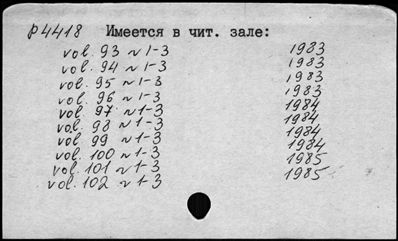 р4418 Имеется в чит. зале:
vol. 93 N 1-3 1983
vol. 94 N 1-3 1983
vol. 95 N 1-3 1983
vol. 96 N 1-3 1983
vol. 97 N 1-3 1984
vol. 98 N 1-3 1984
vol. 99 N 1-3 1984
vol. 100 N 1-3 1984
vol. 101 N 1-3 1985
vol. 102 N 1-3 1985